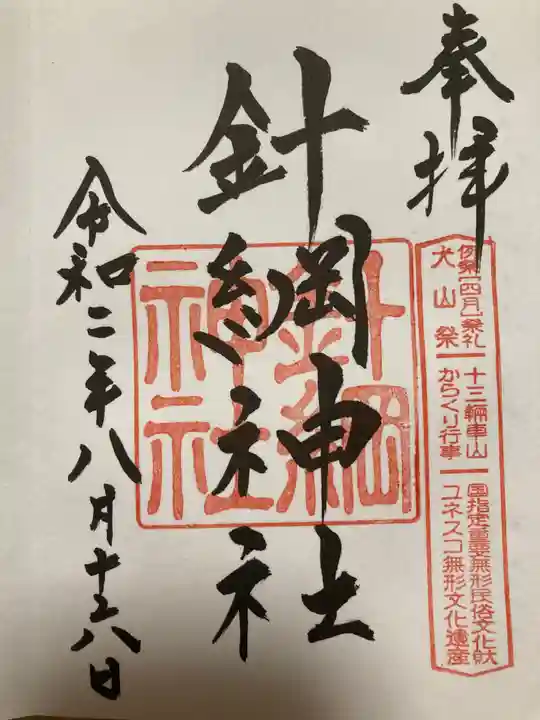 奉拝
例祭[四月]祭礼
犬山祭
十三輛車山
からくり行事
国指定重要無形民俗文化財
ユネスコ無形文化遺産
針綱神社
針綱
神社
令和二年八月十六日